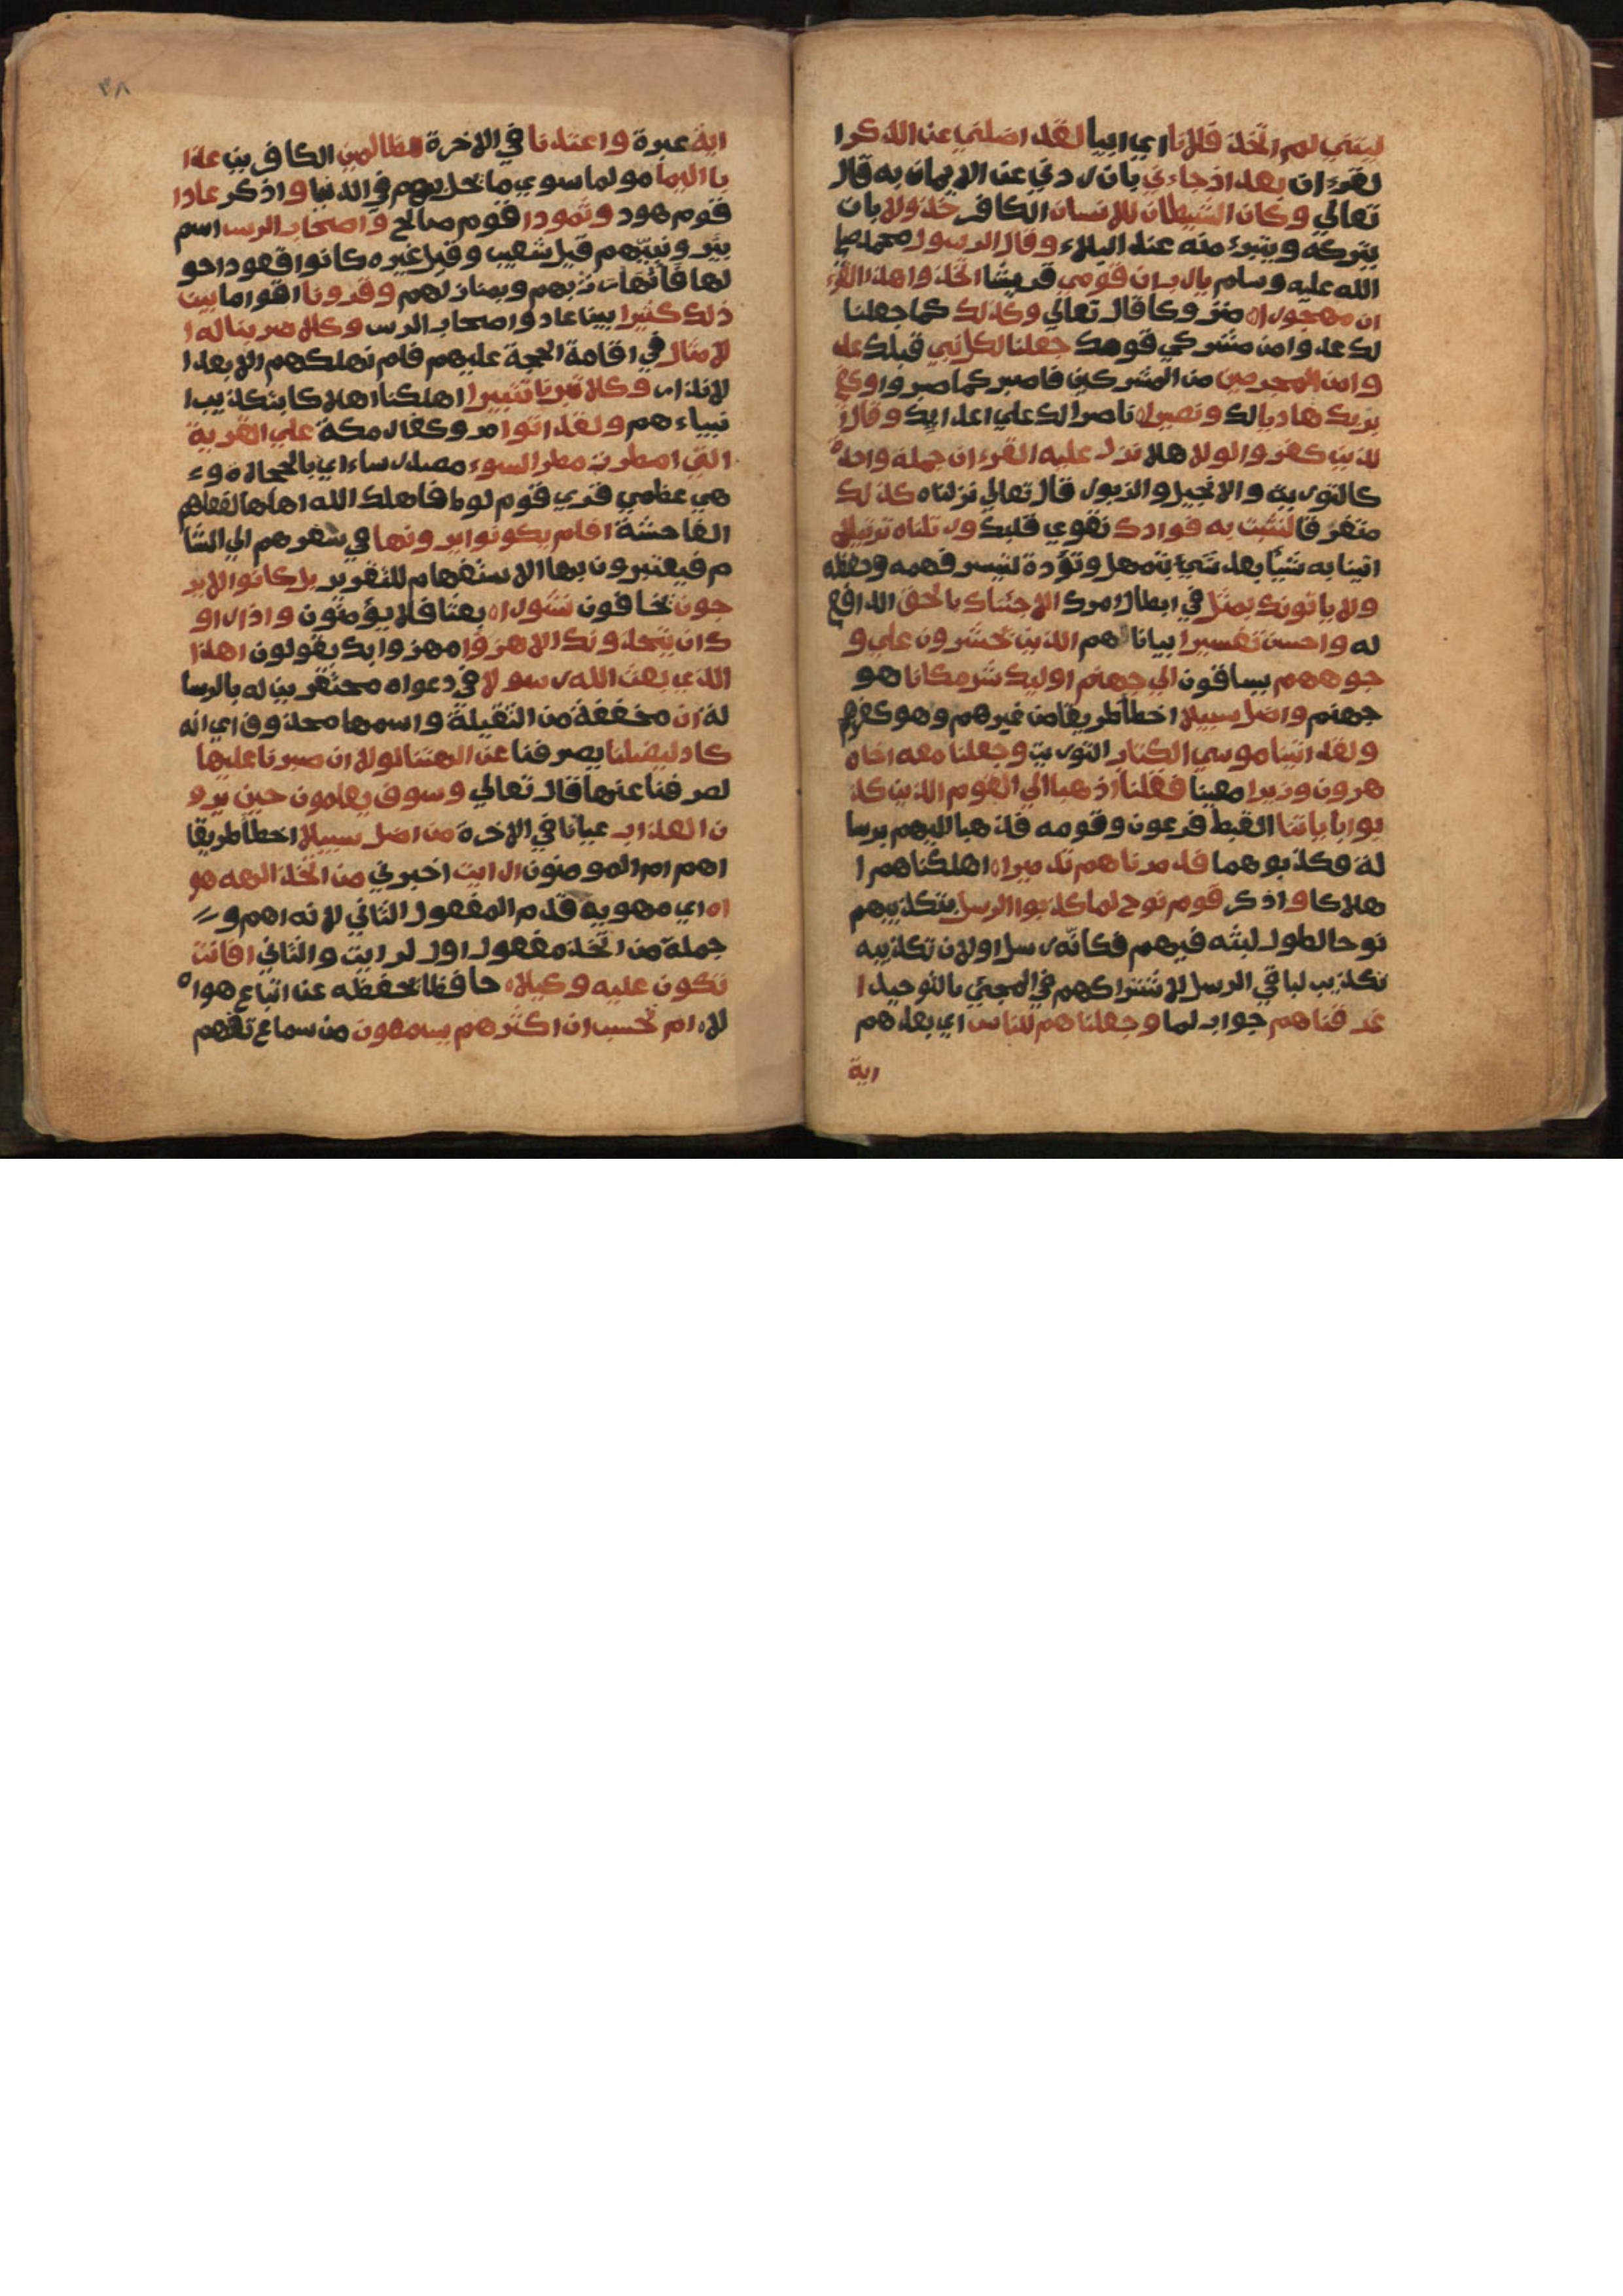 ليتني لم اتخذ فلانا اي ابيا لقد اضلني عن الذكر ا
لقرءان بعد اذ جاءني بان ردني عن الايمان به قال
تعالي وكان الشيطان للانسان الكافر خذولا بان
يتركه ويتبرء منه عند البلاء وقال الرسول محمد صلي
الله عليه وسلم يارب ان قومي قريشا اتخذوا هذا القر
ان مهجورا متروكا قال تعالي وكذلك كما جعلنا
لك عدوا من مشركي قومك جعلنا لكل نبي قبلك عد
وا من المجرمين من المشركين فاصبر كما صبروا وكفي
بربك هاديا لك ونصيرا ناصرا لك علي اعدايك وقال ا
لذين كفروا لولا هلا نزل عليه القرءان جملة واحدة
كالتورية والانجيل والزبور قال تعالي نزلناه كذلك
متفرقا لنثبت به فوادك نقوي قلبك ورتلناه ترتيلا
اتينا به شيأ بعد شيئ بتمهل وتؤدة لتيسر فهمه وحفظه
ولا ياتونك بمثل في ابطال امرك الا جئناك بالحق الدافع
له واحسن تفسيرا بيانا هم الذين يحشرون علي و
جوههم يساقون الي جهنم اوليك شر مكانا هو
جهنم واضل سبيلا اخطأ طريقا من غيرهم وهو كفرهم
ولقد اتينا موسي الكتاب التوريت وجعلنا معه اخاه
هرون وزيرا معينا فقلنا اذهبا الي القوم الذين كذ
بوا باياتنا القبط فرعون وقومه فذهبا اليهم برسا
لة فكذبوهما فدمرناهم تدميرا اهلكناهم ا
هلاكا واذكر قوم نوح لما كذبوا الرسل بتكذيبهم
نوحا لطول لبثه فيهم فكانه رسل اولان تكذيبه
تكذيب لباقي الرسل لاشتراكهم في المجئ بالتوحيد ا
غرقناهم جواب لما وجعلناهم للناس اي بعدهم
اية
٣٨
اية عبرة واعتدنا في الاخرة للظالمين الكافرين عذا
با اليما مولما سوي ما يحل بهم في الدنيا واذكر عادا
قوم هود وثمودا قوم صالح واصحاب الرس اسم
بئر ونبيهم قيل شعيب وقيل غيره كانوا قعودا حو
لها فانهارت بهم وبمنازلهم وقرونا اقواما بين
ذلك كثيرا بين عاد واصحاب الرس وكلا ضربنا له ا
لامثال في اقامة الحجة عليهم فلم نهلكهم الا بعد ا
لانذار وكلا تبرنا تتبيرا اهلكنا اهلاكا بتكذيب ا
نبياءهم ولقد اتوا مر وكفار مكة علي القرية
التي امطرت مطر السوء مصدر ساء اي بالحجارة وء
هي عظمي قري قوم لوط فاهلك الله اهلها لفعلهم
الفاحشة افلم يكونوا يرونها في سفرهم الي الشا
م فيعتبرون بها الاستفهام للتقرير بل كانوا لا ير
جون يخافون نشورا بعثا فلا يؤمنون واذا راو
ك ان يتخذونك الا هزوا مهزوا بك يقولون اهذا
الذي بعث الله رسولا في دعواه محتقرين له بالرسا
لة ان مخففة من الثقيلة واسمها محذوف اي انه
كاد ليضلنا يصرفنا عن الهتنا لولا ان صبرنا عليها
لصرفنا عنها قال تعالي وسوف يعلمون حين يرو
ن العذاب عيانا في الاخرة من اضل سبيلا اخطأ طريقا
اهم ام المومنون ارايت اخبرني من اتخذ الهه هو
اه اي مهويه قدم المفعول الثاني لانه اهم و
جملة من اتخذ مفعول اول لرايت والثاني افانت
تكون عليه وكيلا حافظا تحفظه عن اتباع هواه
لا ام تحسب ان اكثرهم يسمعون من سماع تفهم